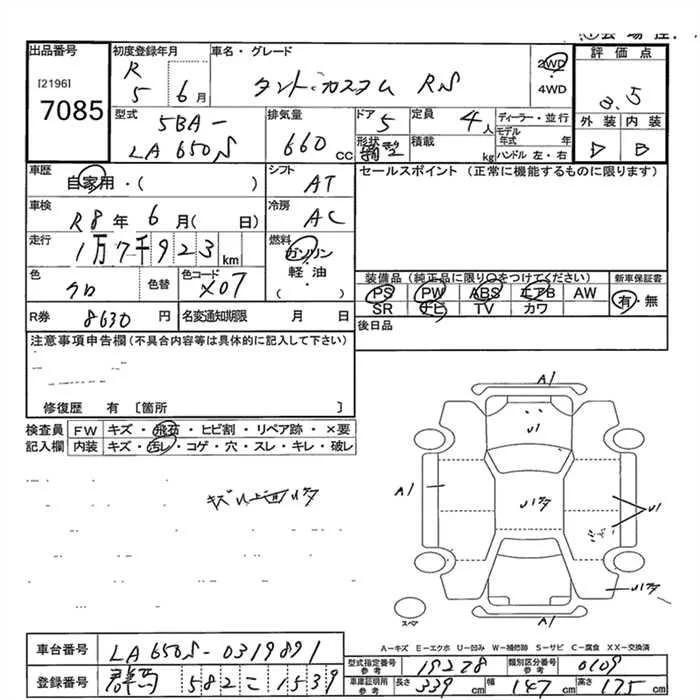 出品番号 初度登録年月 車名・グレード 2WD 評価点
[2196] R
7085 5 6月 タント・カスタム RS 4WD 3.5
型式 排気量 ドア 定員 ディーラー・並行 外装 内装
5BA- 660cc 5 4人 モデル年式 年 D B
LA650S 形状 積載 kg ハンドル 左・右
車歴 シフト セールスポイント(正常に機能するものに限ります)
自家用・( ) AT
車検 冷房
R8年6月( 日) AC
走行 燃料
1万7千923km ガソリン
色 色替 色コード 軽・油 装備品(純正品に限り○をつけてください) 新車保証書
クロ X07 ( ) PS PW ABS エアB AW 有・無
SR ナビ TV カワ
R券 8630円 名変通知期限 月 日 後日品
注意事項申告欄(不具合内容等は具体的に記入して下さい)
修復歴 有 〔箇所 〕
検査員 FW キズ・飛石・ヒビ割・リペア跡・×要
記入欄 内装 キズ・汚レ・コゲ・穴・スレ・キレ・破レ
A1
U1
A1
U1
A1
スペア
A-キズ E-エクボ U-凹み W-補修跡 S-サビ C-腐食 XX-交換済
車台番号 LA650S-0319891
型式指定番号 参考 19278 類別区分番号 参考 0109
登録番号 群馬 582 こ 1539
車庫証明用 参考 長さ 339cm 幅 147cm 高さ 175cm